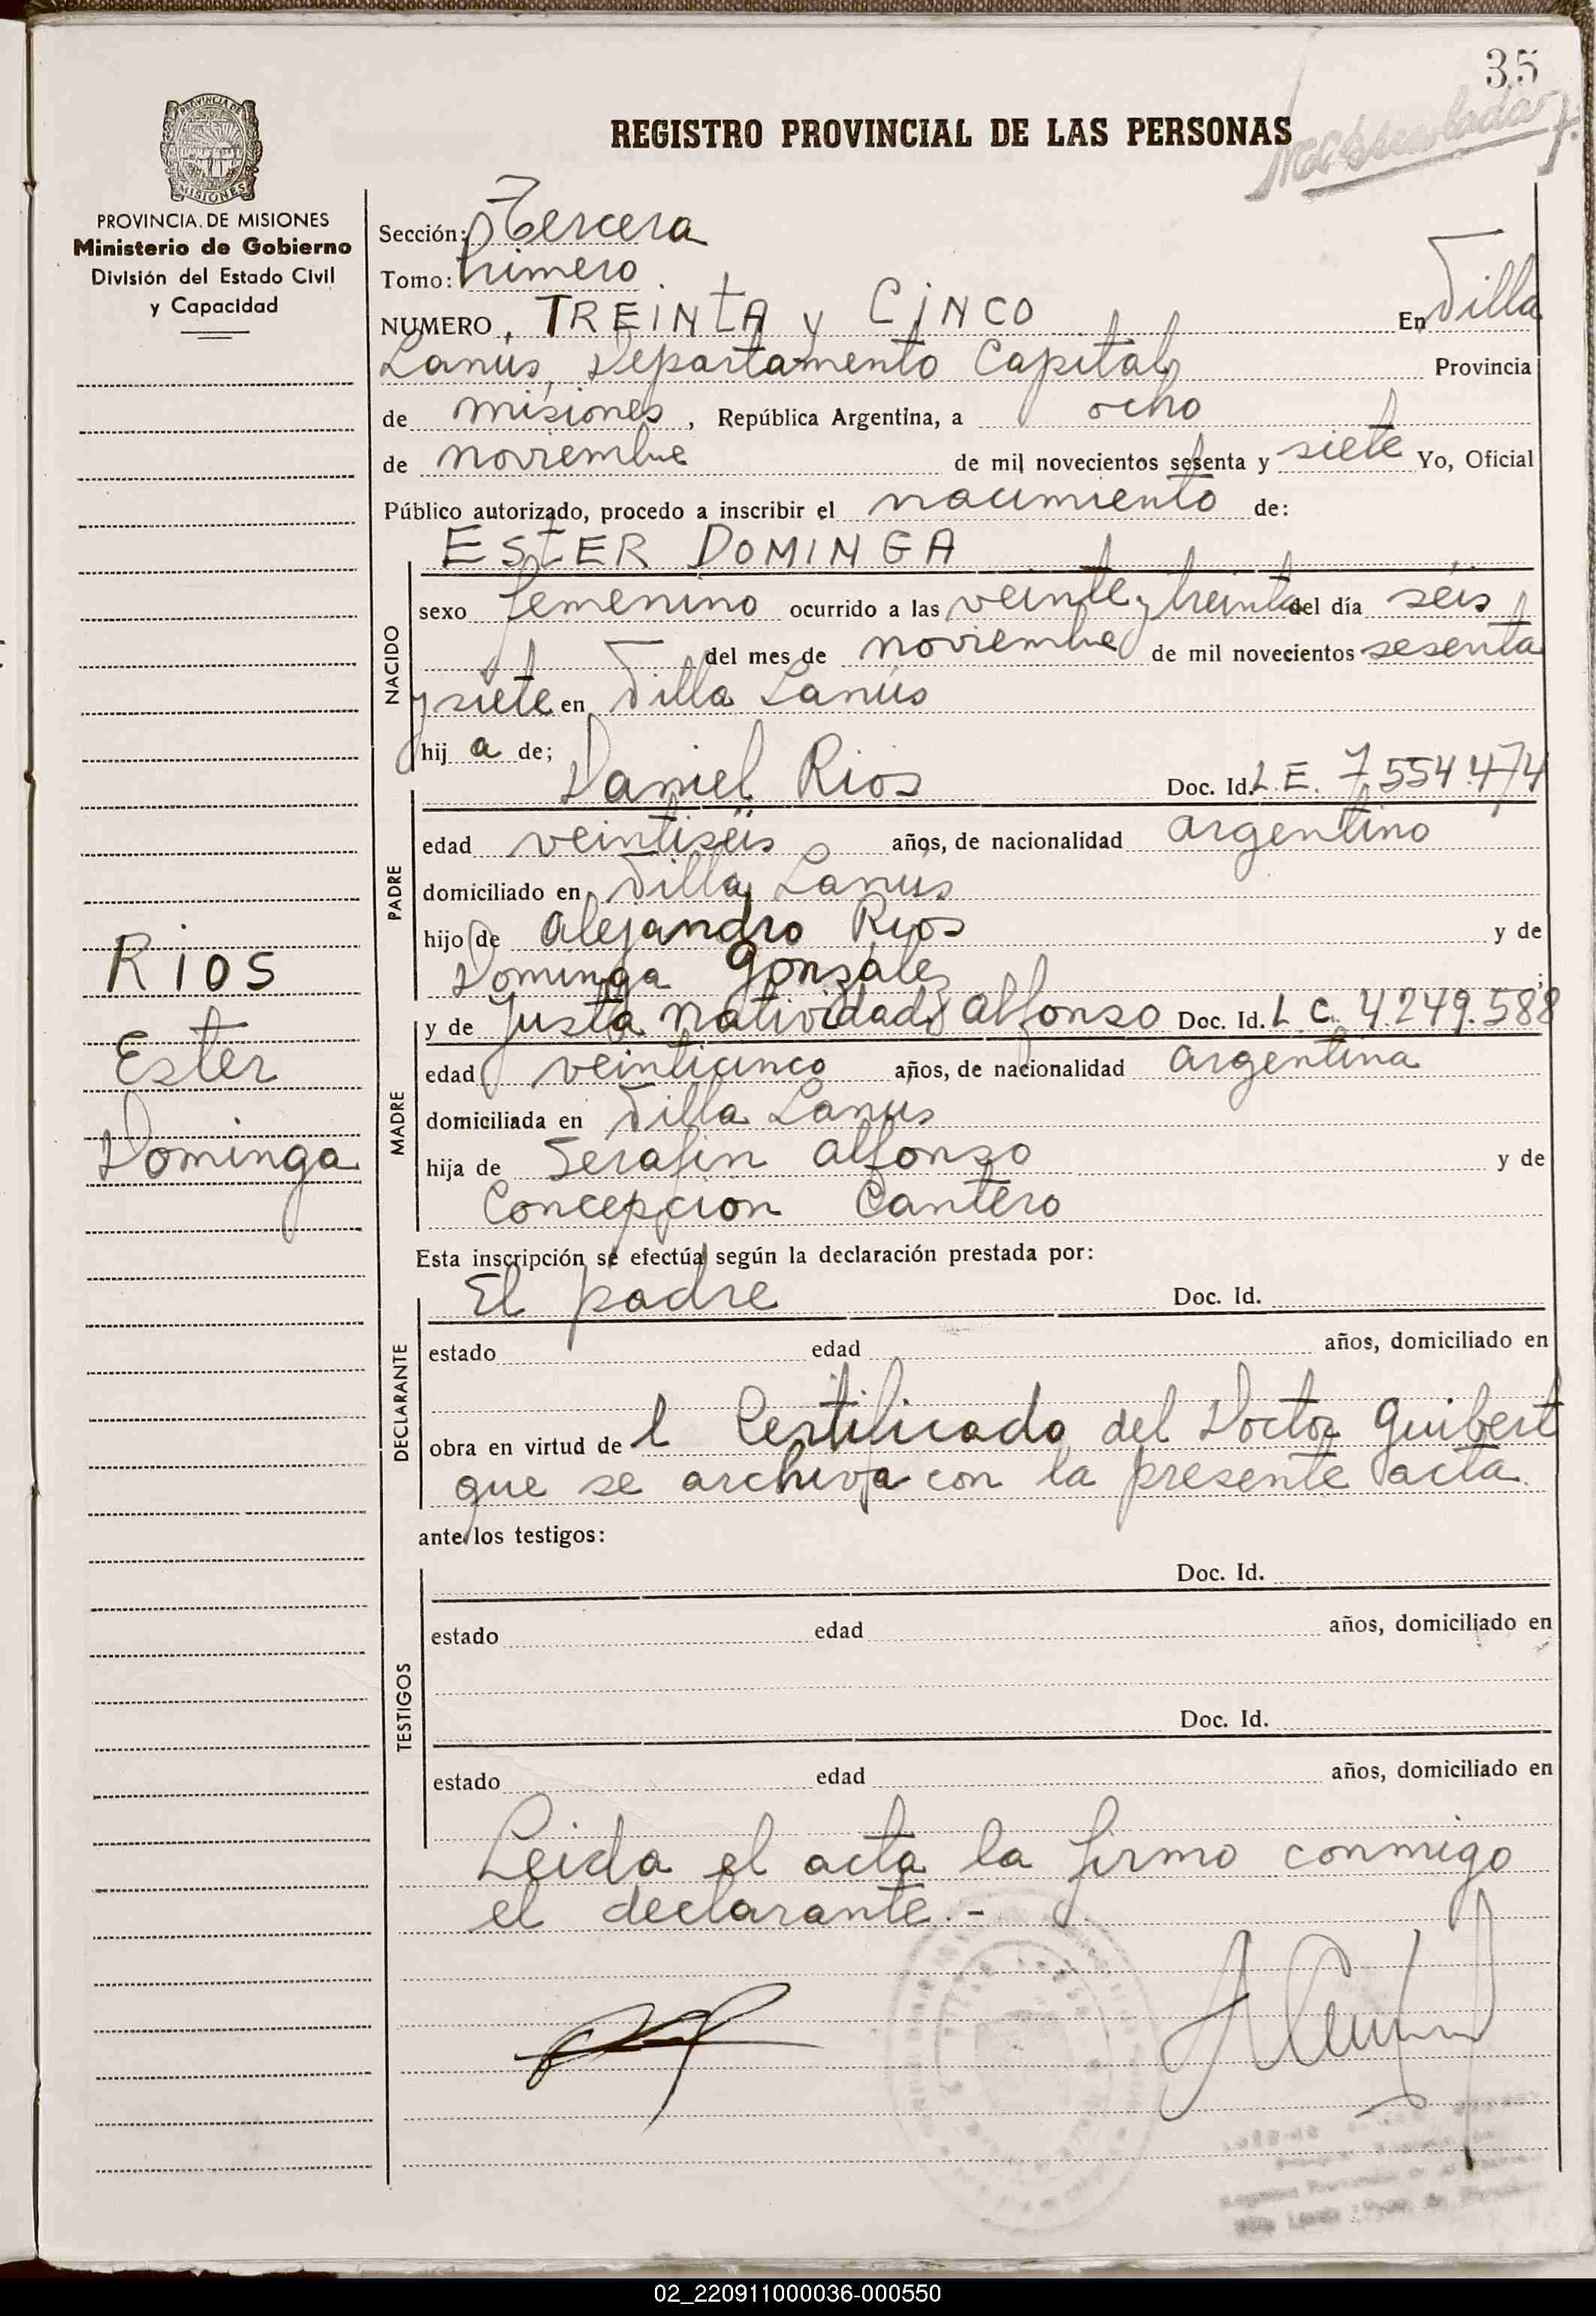 35
REGISTRO PROVINCIAL DE LAS PERSONAS
PROVINCIA DE MISIONES
Ministerio de Gobierno
División del Estado Civil
y Capacidad
Sección: Tercera
Tomo: Primero
NUMERO, TREINTA y CINCO En Villa
Lanús, Departamento Capital Provincia
de misiones, República Argentina, a ocho
de noviembre de mil novecientos sesenta y siete Yo, Oficial
Público autorizado, procedo a inscribir el nacimiento de:
ESTER DOMINGA
NACIDO
sexo femenino ocurrido a las veinte y treinta del día séis
del mes de noviembre de mil novecientos sesenta
y siete en Villa Lanús
hij a de;
PADRE
Daniel Rios Doc. Id. L.E. 7.554.474
edad veintiséis años, de nacionalidad argentino
domiciliado en Villa Lanús
hijo de Alejandro Rios y de
Dominga Gonzalez
Rios
Ester
Dominga
MADRE
y de Justa Natividad Alfonso Doc. Id. L.C. 4.249.588
edad veinticinco años, de nacionalidad argentina
domiciliada en Villa Lanus
hija de Serafin Alfonso y de
Concepcion Cantero
Esta inscripción se efectúa según la declaración prestada por:
DECLARANTE
El padre Doc. Id.
estado edad años, domiciliado en
obra en virtud de l Certificado del Doctor Guibert
que se archiva con la presente acta.
ante los testigos:
TESTIGOS
Doc. Id.
estado edad años, domiciliado en
Doc. Id.
estado edad años, domiciliado en
Leida el acta la firmo conmigo
el declarante.-
02_220911000036-000550